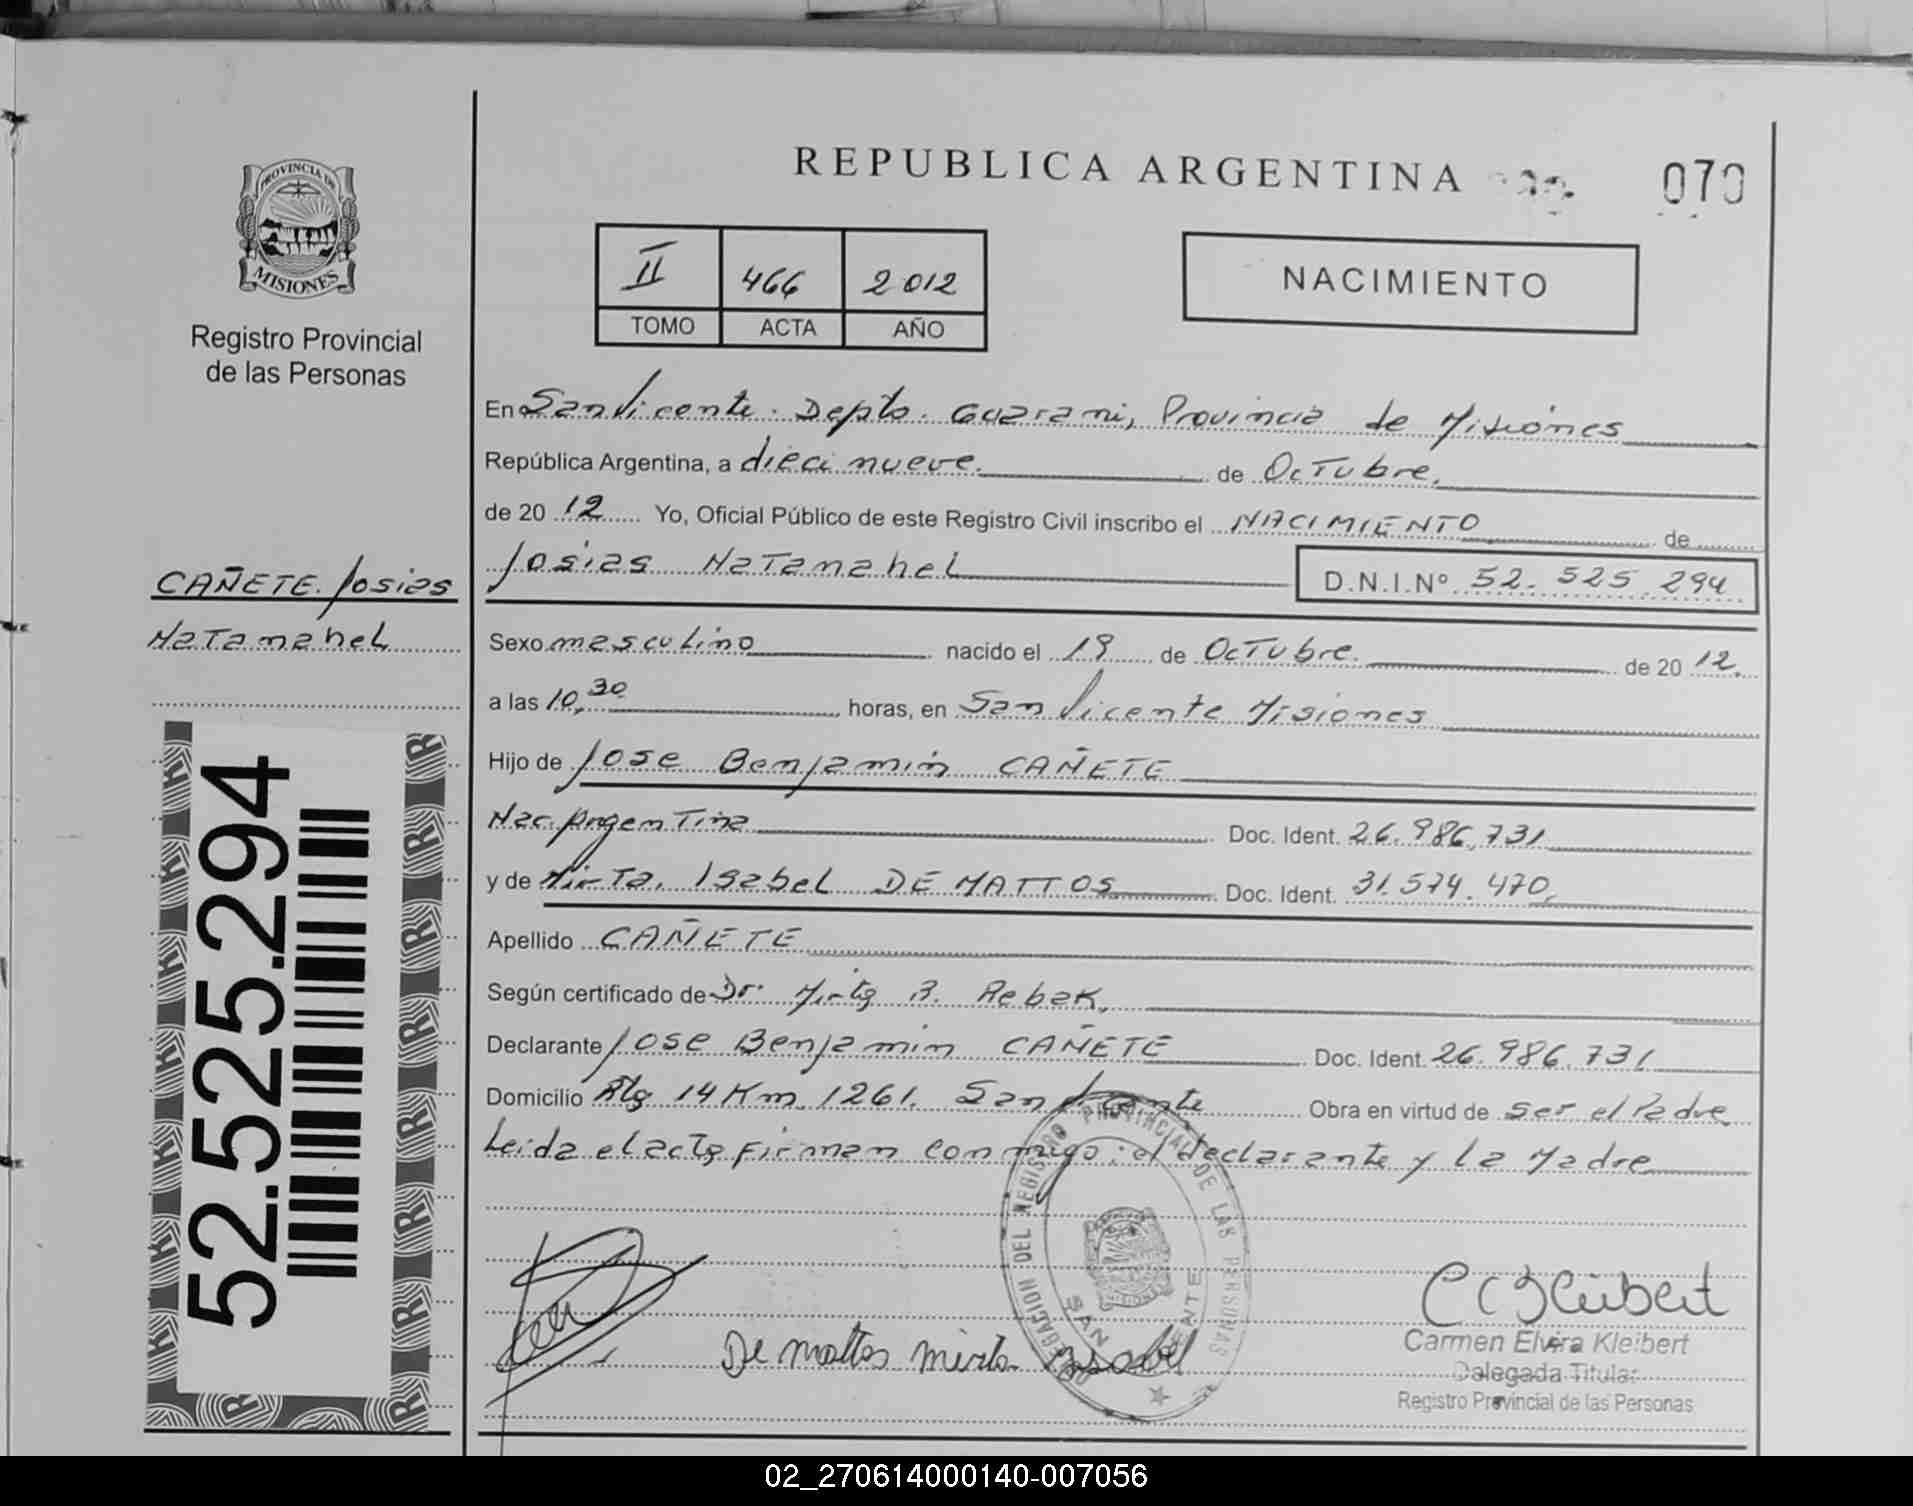 REPUBLICA ARGENTINA
070
PROVINCIA DE
MISIONES
Registro Provincial
de las Personas
II 466 2012
TOMO ACTA AÑO
NACIMIENTO
En San Vicente. Depto. Guarani, Provincia de Misiones
República Argentina, a dieci nueve. de Octubre.
de 20 12 Yo, Oficial Público de este Registro Civil inscribo el NACIMIENTO de
Josias Natanahel D.N.I.Nº 52.525.294
CAÑETE. Josias
Natanahel
Sexo masculino nacido el 19 de Octubre. de 20 12.
a las 10,30 horas, en San Vicente Misiones
Hijo de Jose Benjamin CAÑETE
Nac. Argentina Doc. Ident. 26.986.731
y de Mirta. Isabel DE MATTOS Doc. Ident. 31.574.470
Apellido CAÑETE
Según certificado de Dr. Mirtg R. Rebak,
Declarante Jose Benjamin CAÑETE Doc. Ident. 26.986.731
Domicilio 14 Km. 1261. San Vicente Obra en virtud de ser el Padre
Leida el actg firman conmigo: el declarante y la Madre
52.525.294
DELEGACION DEL REGISTRO PROVINCIAL DE LAS PERSONAS
SAN VICENTE
De mattos mirta Isabel
C C Kleibert
Carmen Elvira Kleibert
Delegada Titular
Registro Provincial de las Personas
02_270614000140-007056